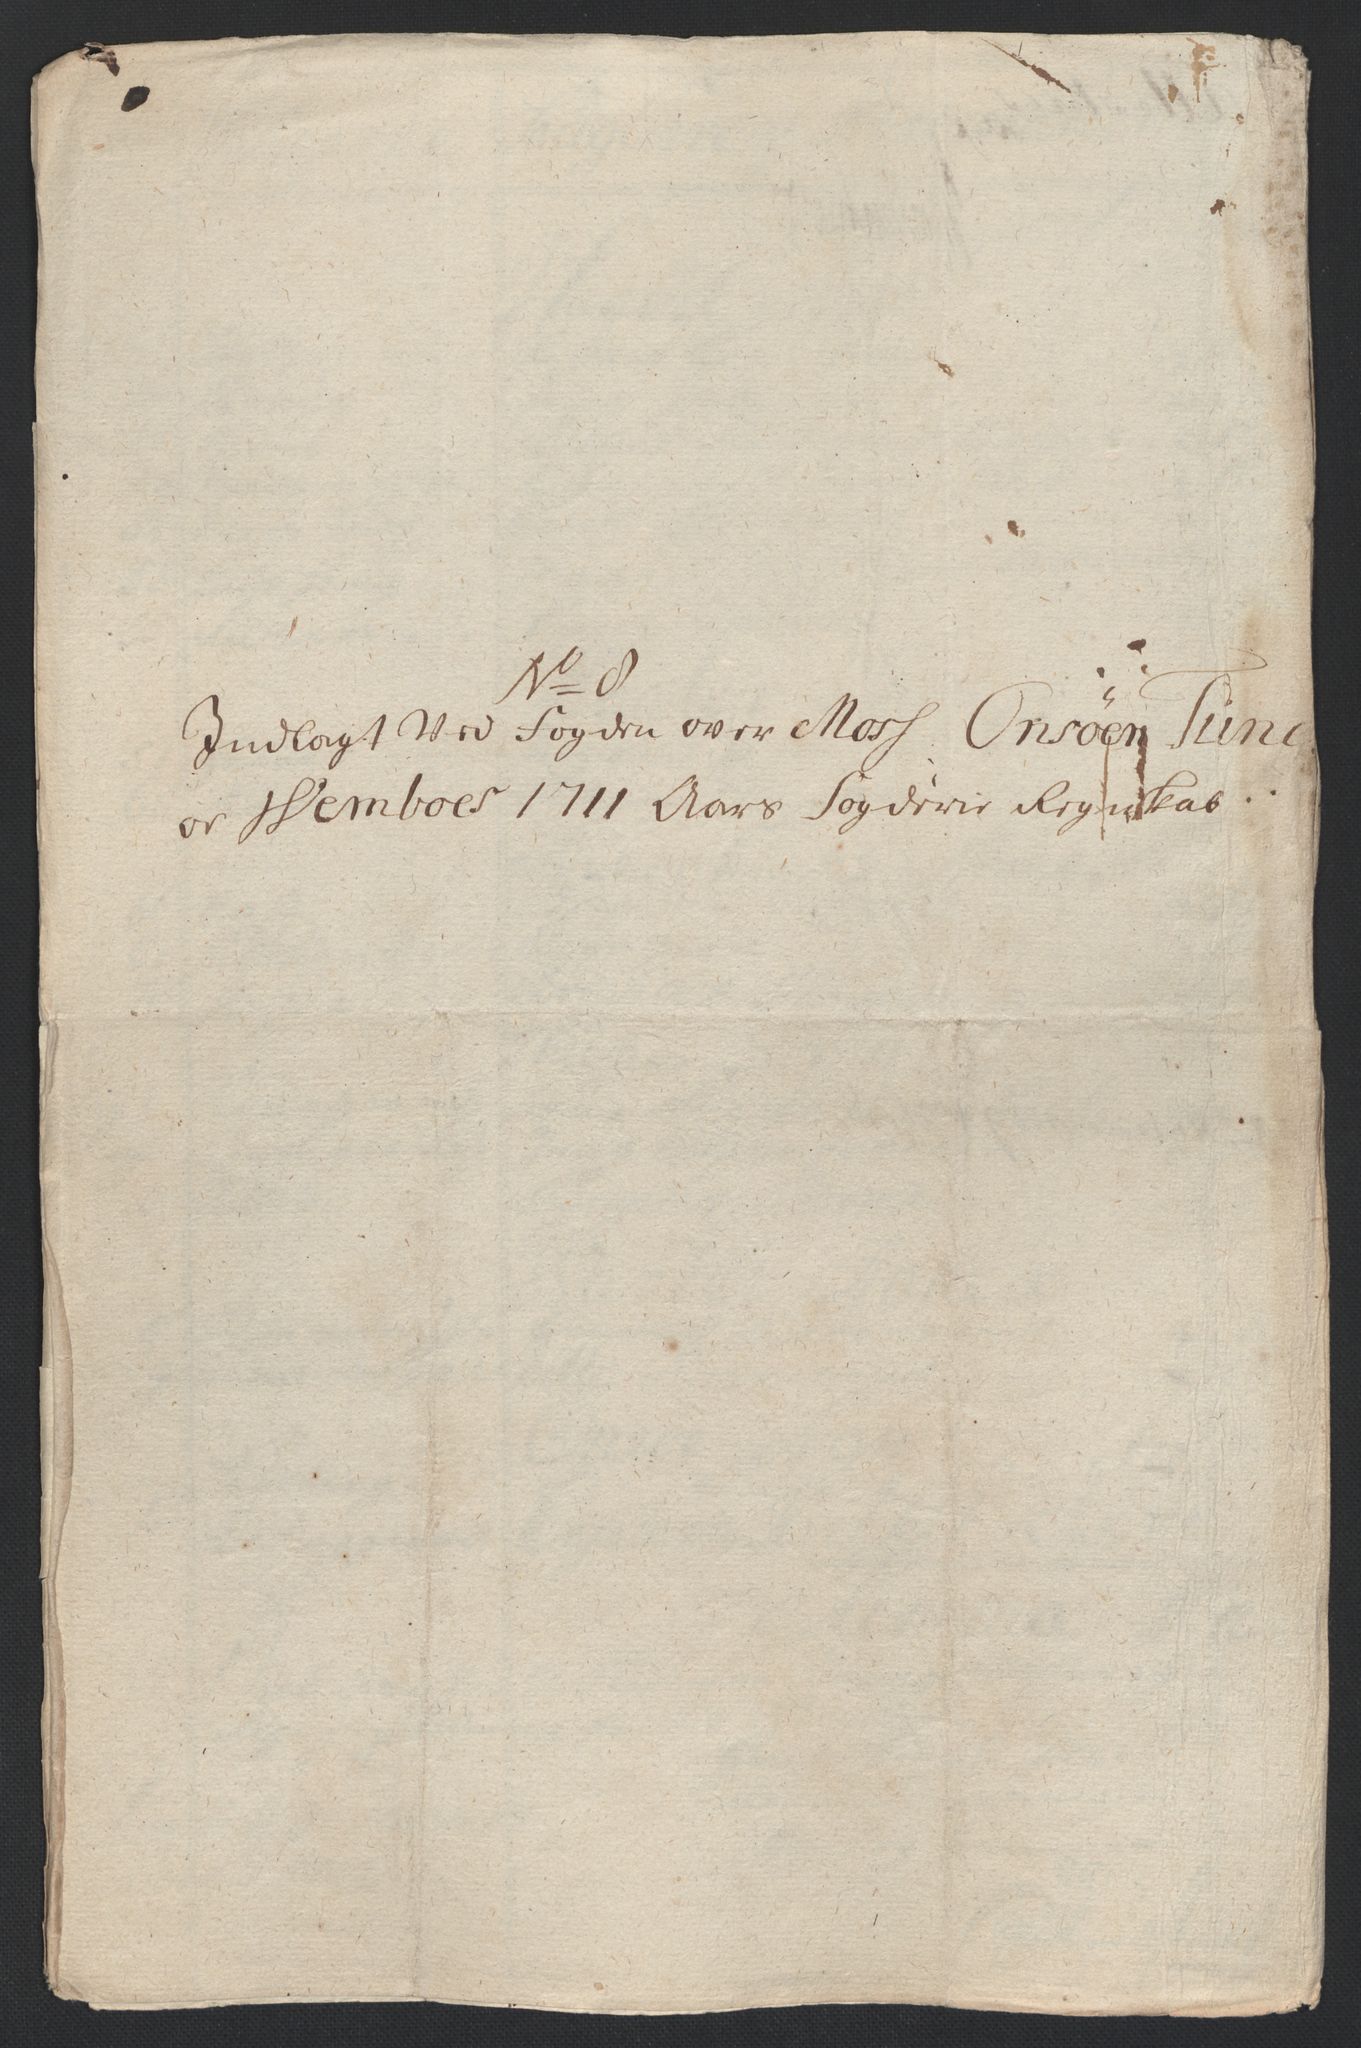 No 8
Indlagt Ved Fogden over Mosz Onsöen Tüne
oc Wemboes 1711 Aars Fogderie Regnskab